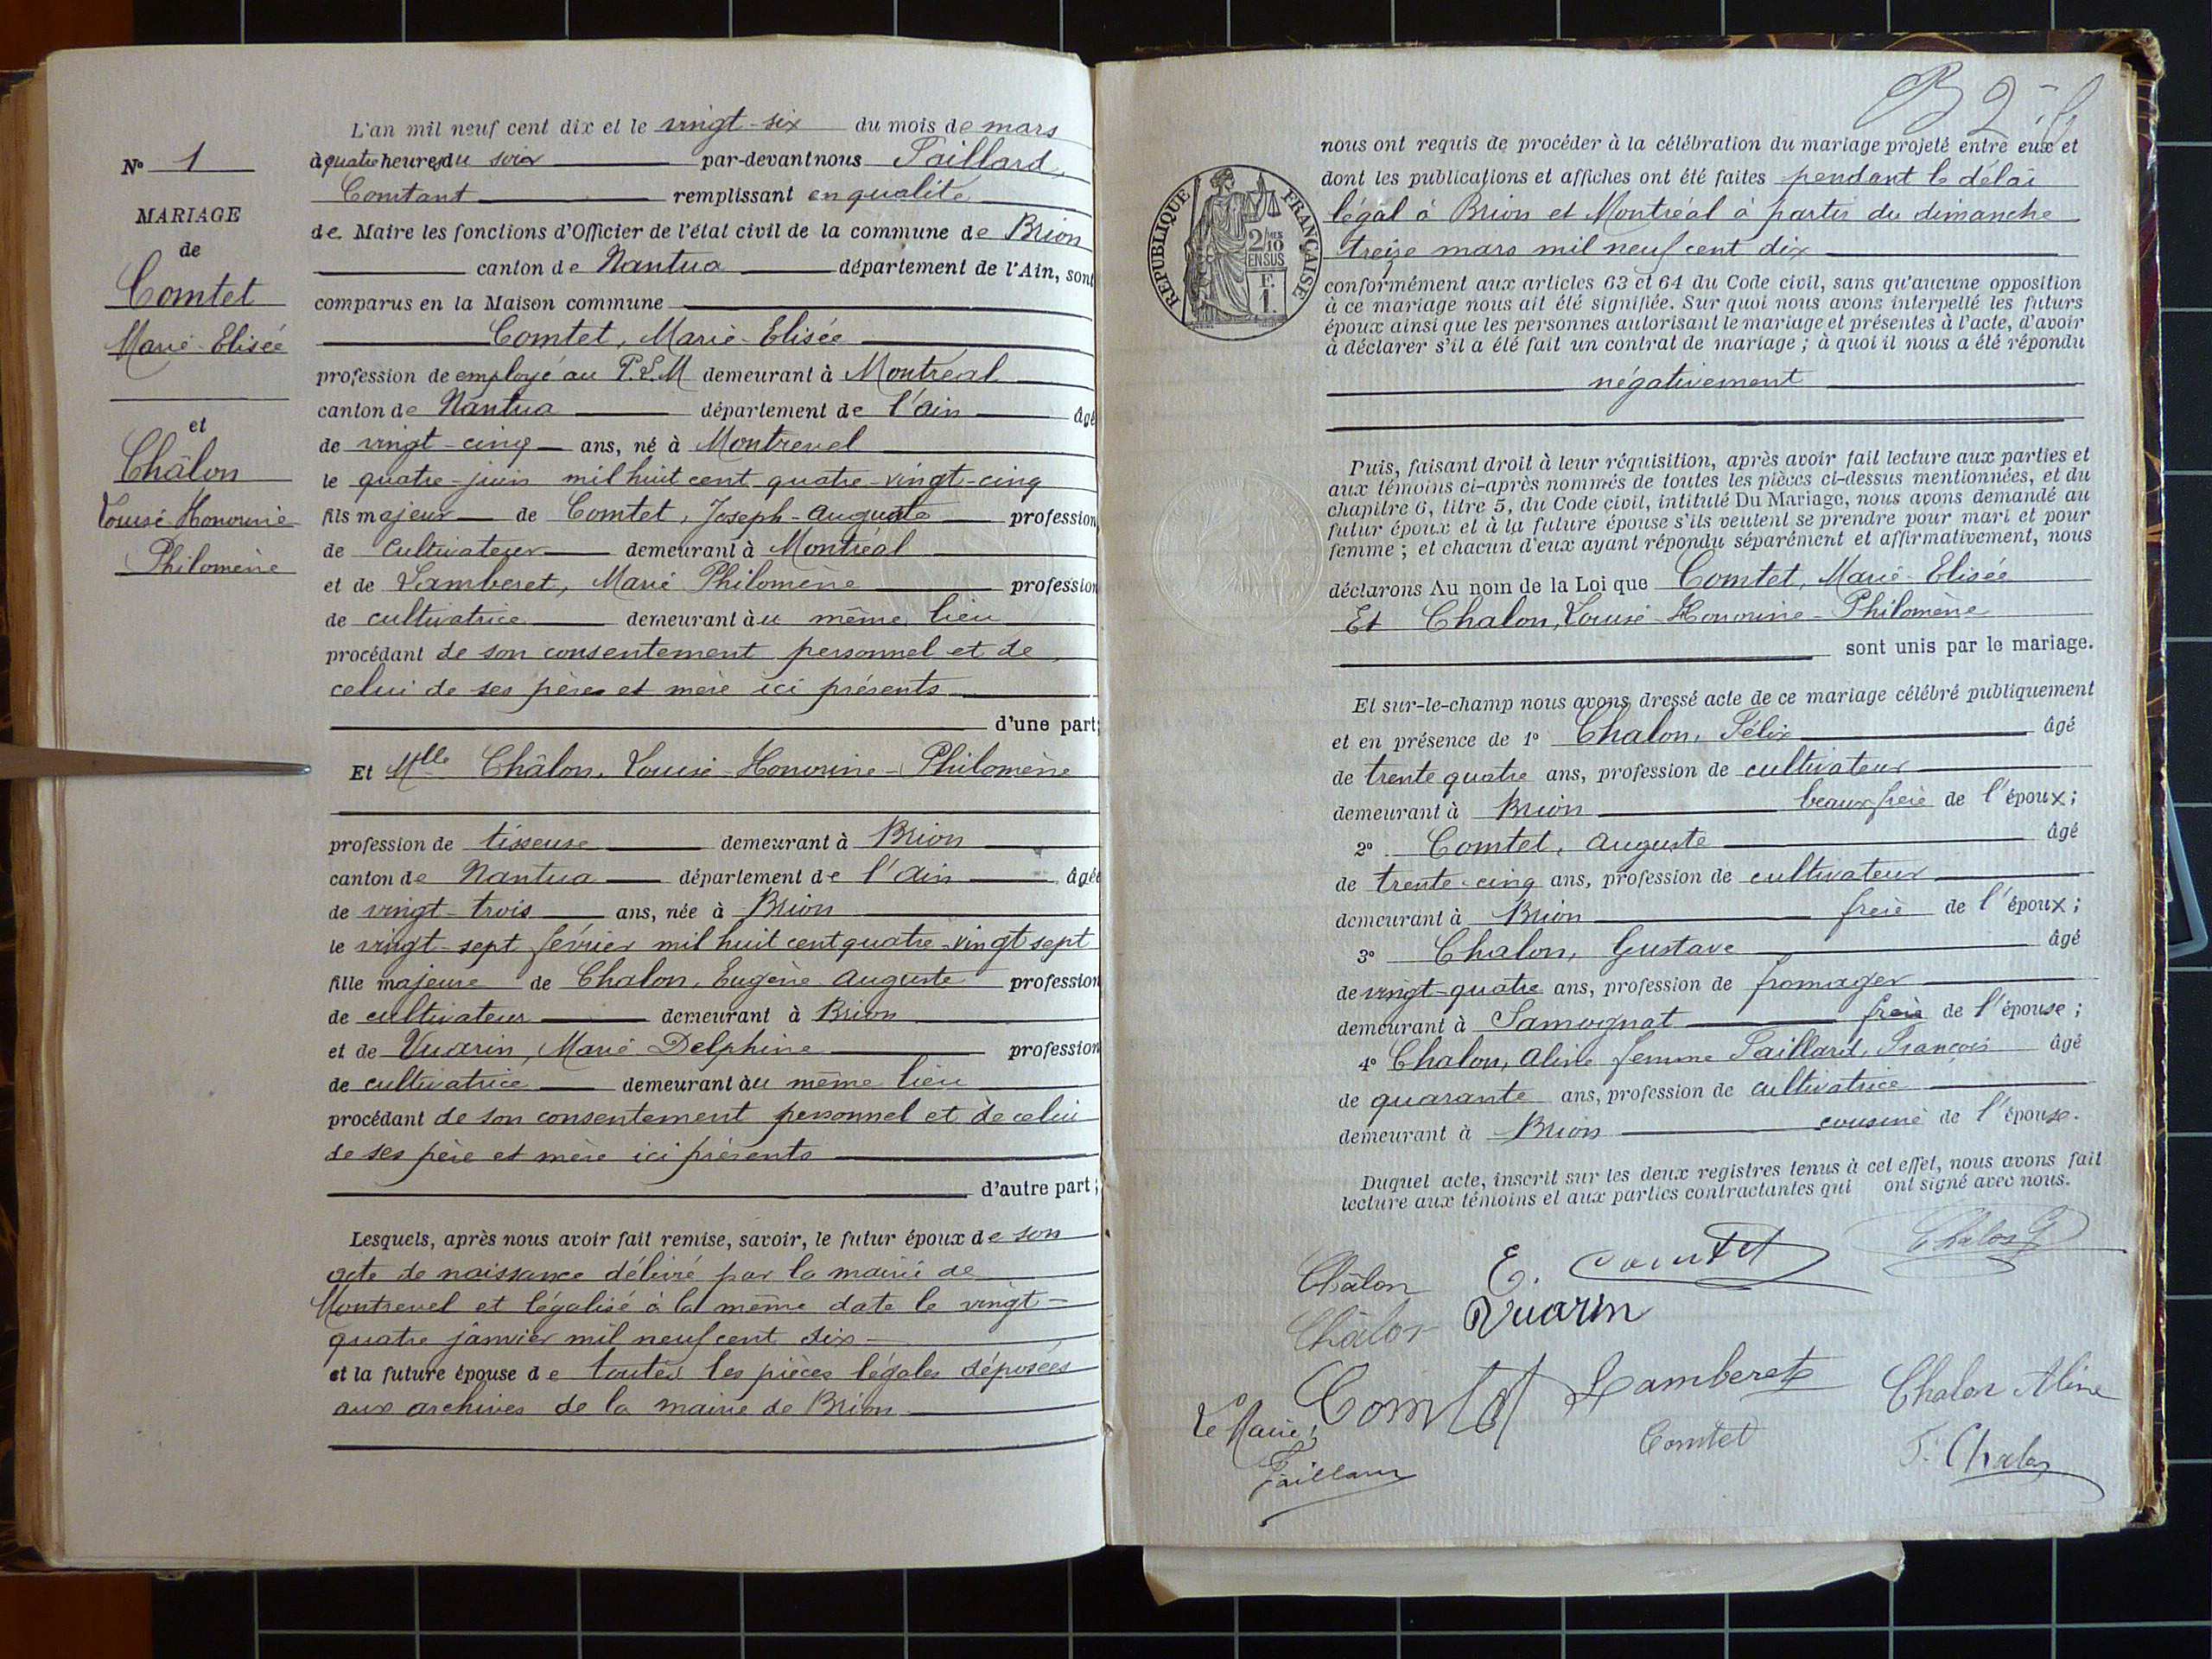 N° 1
MARIAGE
de
Comtet
Marie-Elisée
et
Châlon
Louise Honorine
Philomène
L'an mil neuf cent dix et le vingt-six du mois de mars
à quatre heures du soir par-devant nous Paillard,
Constant remplissant en qualité
de Maire les fonctions d'Officier de l'état civil de la commune de Brion
canton de Nantua département de l'Ain, sont
comparus en la Maison commune
Comtet, Marie-Elisée
profession de employé au P.L.M demeurant à Montréal
canton de Nantua département de l'Ain âgé
de vingt-cinq ans, né à Montrevel
le quatre juin mil huit cent quatre-vingt-cinq
fils majeur de Comtet, Joseph-Auguste profession
de cultivateur demeurant à Montréal
et de Lamberet, Marie Philomène profession
de cultivatrice demeurant àu même lieu
procédant de son consentement personnel et de
celui de ses pères et mère ici présents
d'une part;
Et Mlle Châlon, Louise-Honorine-Philomène
profession de tisseuse demeurant à Brion
canton de Nantua département de l'Ain âgée
de vingt-trois ans, née à Brion
le vingt-sept février mil huit cent quatre-vingt sept
fille majeure de Chalon, Eugène Auguste profession
de cultivateur demeurant à Brion
et de Vuarin, Marie Delphine profession
de cultivatrice demeurant àu même lieu
procédant de son consentement personnel et de celui
de ses père et mère ici présents
d'autre part;
Lesquels, après nous avoir fait remise, savoir, le futur époux de son
acte de naissance délivré par la mairie de
Montrevel et légalisé à la même date le vingt-
quatre janvier mil neuf cent dix
et la future épouse de toutes les pièces légales déposées
aux archives de la mairie de Brion
RÉPUBLIQUE FRANÇAISE
2/10 MES
EN SUS
F.
1.
nous ont requis de procéder à la célébration du mariage projeté entre eux et
dont les publications et affiches ont été faites pendant le délai
légal à Brion et Montréal à partir du dimanche
treize mars mil neuf cent dix
conformément aux articles 63 et 64 du Code civil, sans qu'aucune opposition
à ce mariage nous ait été signifiée. Sur quoi nous avons interpellé les futurs
époux ainsi que les personnes autorisant le mariage et présentes à l'acte, d'avoir
à déclarer s'il a été fait un contrat de mariage; à quoi il nous a été répondu
négativement
Puis, faisant droit à leur réquisition, après avoir fait lecture aux parties et
aux témoins ci-après nommés de toutes les pièces ci-dessus mentionnées, et du
chapitre 6, titre 5, du Code civil, intitulé Du Mariage, nous avons demandé au
futur époux et à la future épouse s'ils veulent se prendre pour mari et pour
femme; et chacun d'eux ayant répondu séparément et affirmativement, nous
déclarons Au nom de la Loi que Comtet, Marie-Elisée
Et Chalon, Louise-Honorine-Philomène
sont unis par le mariage.
Et sur-le-champ nous avons dressé acte de ce mariage célébré publiquement
et en présence de 1° Chalon, Félix âgé
de trente quatre ans, profession de cultivateur
demeurant à Brion beaux frère de l'époux;
2° Comtet, Auguste âgé
de trente-cinq ans, profession de cultivateur
demeurant à Brion frère de l'époux;
3° Chalon, Gustave âgé
de vingt-quatre ans, profession de fromager
demeurant à Samognat frère de l'épouse;
4° Chalon, Aline femme Paillard, François âgé
de quarante ans, profession de cultivatrice
demeurant à Brion cousine de l'épouse.
Duquel acte, inscrit sur les deux registres tenus à cet effet, nous avons fait
lecture aux témoins et aux parties contractantes qui ont signé avec nous.
Châlon E. Comtet Chalon G
Châlon Vuarin
Comtet Lamberet Chalon Aline
Le Maire, Comtet F. Chalon
Paillard